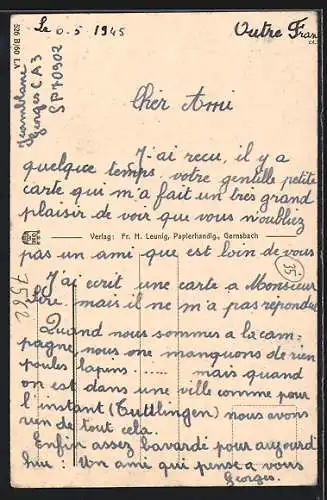 526 B/60 L.A
Le 0.5 1945
Outre Fran
Georges CA3
SP70902
Cher Ami
J'ai reçu, il y a
quelque temps votre gentille petite
carte qui m'a fait un très grand
plaisir de voir que vous n'oubliez
Verlag: Fr. H. Leunig, Papierhandlg., Garnsbach
pas un ami que est loin de vous
35-
7582
J'ai ecrit une carte a Monsieur
mais il ne m'a pas répondre
Quand nous sommes a la cam-
pagne, nous one manquons de rien
poules lapins ...... mais quand
on est dans une ville comme pour
l'instant (Tuttlingen) nous avons
rien de tout cela.
Enfin assez bavardé pour aujourd
hui : Un ami qui pense a vous
Georges.